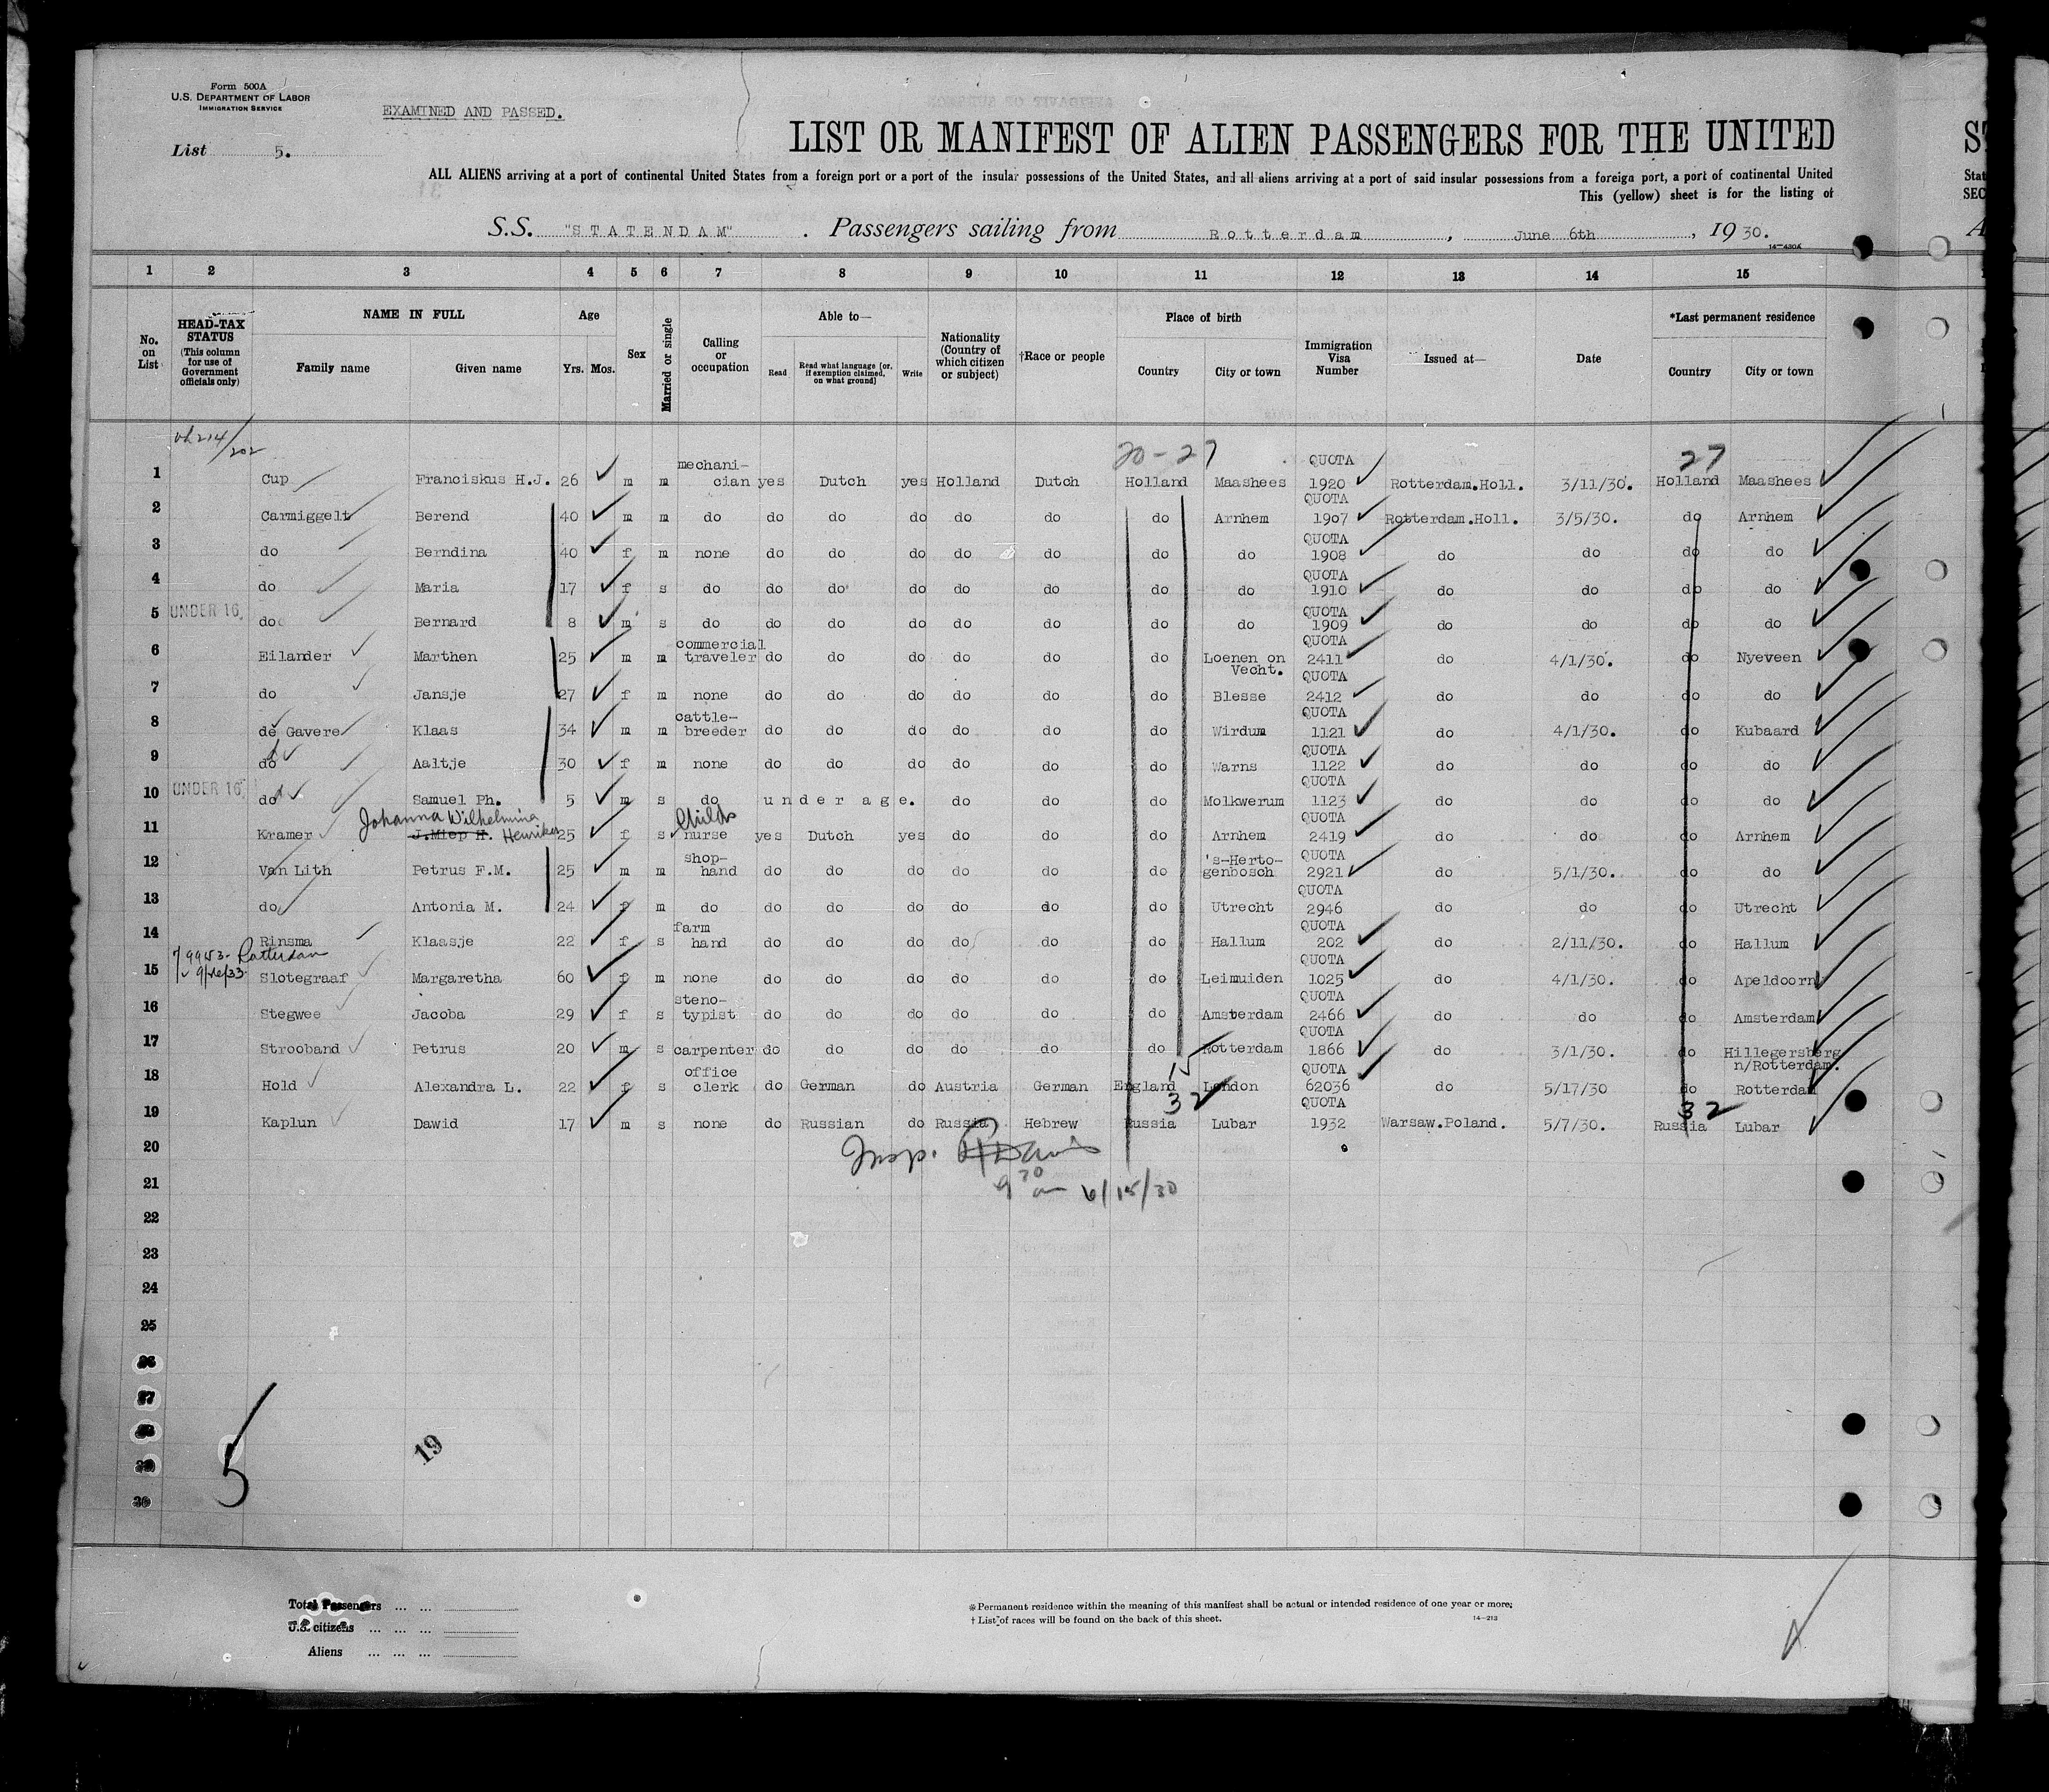 Form 500A
U.S. DEPARTMENT OF LABOR
IMMIGRATION SERVICE
EXAMINED AND PASSED.
List 5.
LIST OR MANIFEST OF ALIEN PASSENGERS FOR THE UNITED
ALL ALIENS arriving at a port of continental United States from a foreign port or a port of the insular possessions of the United States, and all aliens arriving at a port of said insular possessions from a foreign port, a port of continental United
This (yellow) sheet is for the listing of
S.S. "STATENDAM". Passengers sailing from Rotterdam, June 6th, 1930.
14-430A
1 2 3 4 5 6 7 8 9 10 11 12 13 14 15
No. on List
HEAD-TAX STATUS (This column for use of Government officials only)
NAME IN FULL Family name Given name
Age Yrs. Mos.
Sex
Married or single
Calling or occupation
Able to— Read Read what language [or, if exemption claimed, on what ground] Write
Nationality (Country of which citizen or subject)
†Race or people
Place of birth Country City or town
Immigration Visa Number
Issued at—
Date
*Last permanent residence Country City or town
20-27 27
1 Cup Franciskus H.J. 26 m m mechani-cian yes Dutch yes Holland Dutch Holland Maashees QUOTA 1920 Rotterdam.Holl. 3/11/30. Holland Maashees
2 Carmiggelt Berend 40 m m do do do do do do do Arnhem QUOTA 1907 Rotterdam.Holl. 3/5/30. do Arnhem
3 do Berndina 40 f m none do do do do do do do QUOTA 1908 do do do do
4 do Maria 17 f s do do do do do do do do QUOTA 1910 do do do do
5 UNDER 16 do Bernard 8 m s do do do do do do do do QUOTA 1909 do do do do
6 Eilander Marthen 25 m m commercial traveler do do do do do do Loenen on Vecht. QUOTA 2411 do 4/1/30. do Nyeveen
7 do Jansje 27 f m none do do do do do do Blesse QUOTA 2412 do do do do
8 de Gavere Klaas 34 m m cattle-breeder do do do do do do Wirdum QUOTA 1121 do 4/1/30. do Kubaard
9 do Aaltje 30 f m none do do do do do do Warns QUOTA 1122 do do do do
10 UNDER 16 do Samuel Ph. 5 m s do under age. do do do Molkwerum QUOTA 1123 do do do do
Johanna Wilhelmina
11 Kramer J.Miep H. Henrika 25 f s Childs nurse yes Dutch yes do do do Arnhem QUOTA 2419 do do do Arnhem
12 Van Lith Petrus F.M. 25 m m shop-hand do do do do do do 's-Herto-genbosch QUOTA 2921 do 5/1/30. do do
13 do Antonia M. 24 f m do do do do do do do Utrecht QUOTA 2946 do do do Utrecht
14 Rinsma Klaasje 22 f s farm hand do do do do do do Hallum QUOTA 202 do 2/11/30. do Hallum
Rotterdam
15 Slotegraaf Margaretha 60 f m none do do do do do do Leimuiden QUOTA 1025 do 4/1/30. do Apeldoorn
16 Stegwee Jacoba 29 f s steno-typist do do do do do do Amsterdam QUOTA 2466 do do do Amsterdam
17 Strooband Petrus 20 m s carpenter do do do do do do Rotterdam QUOTA 1866 do 3/1/30. do Hillegersberg n/Rotterdam.
18 Hold Alexandra L. 22 f s office clerk do German do Austria German England London QUOTA 62036 do 5/17/30 do Rotterdam
15 32 32
19 Kaplun Dawid 17 m s none do Russian do Russia Hebrew Russia Lubar QUOTA 1932 Warsaw.Poland. 5/7/30. Russia Lubar
20
Insp.
21
9 30 am 6/15/30
22
23
24
25
26
27
28
29
30
5
19
Total Passengers ... ...
U.S. citizens ... ... ...
Aliens ... ... ...
*Permanent residence within the meaning of this manifest shall be actual or intended residence of one year or more;
† List of races will be found on the back of this sheet.
14-213